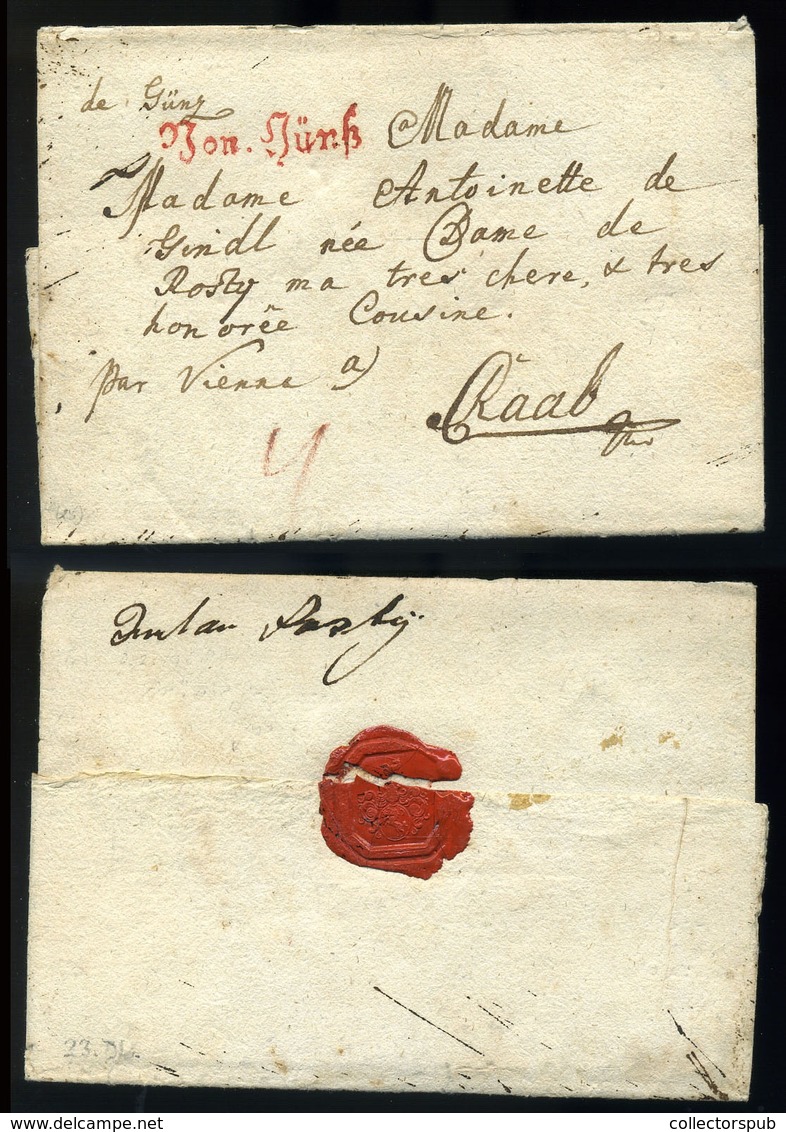 de Günz
Von. Günß
a Madame
Madame Antoinette de
Gindl née Dame de
Rosty ma tres chere, & tres
honorêe Cousine.
par Vienne a)
à
Raab
4
Rosty
23.
collectorspub